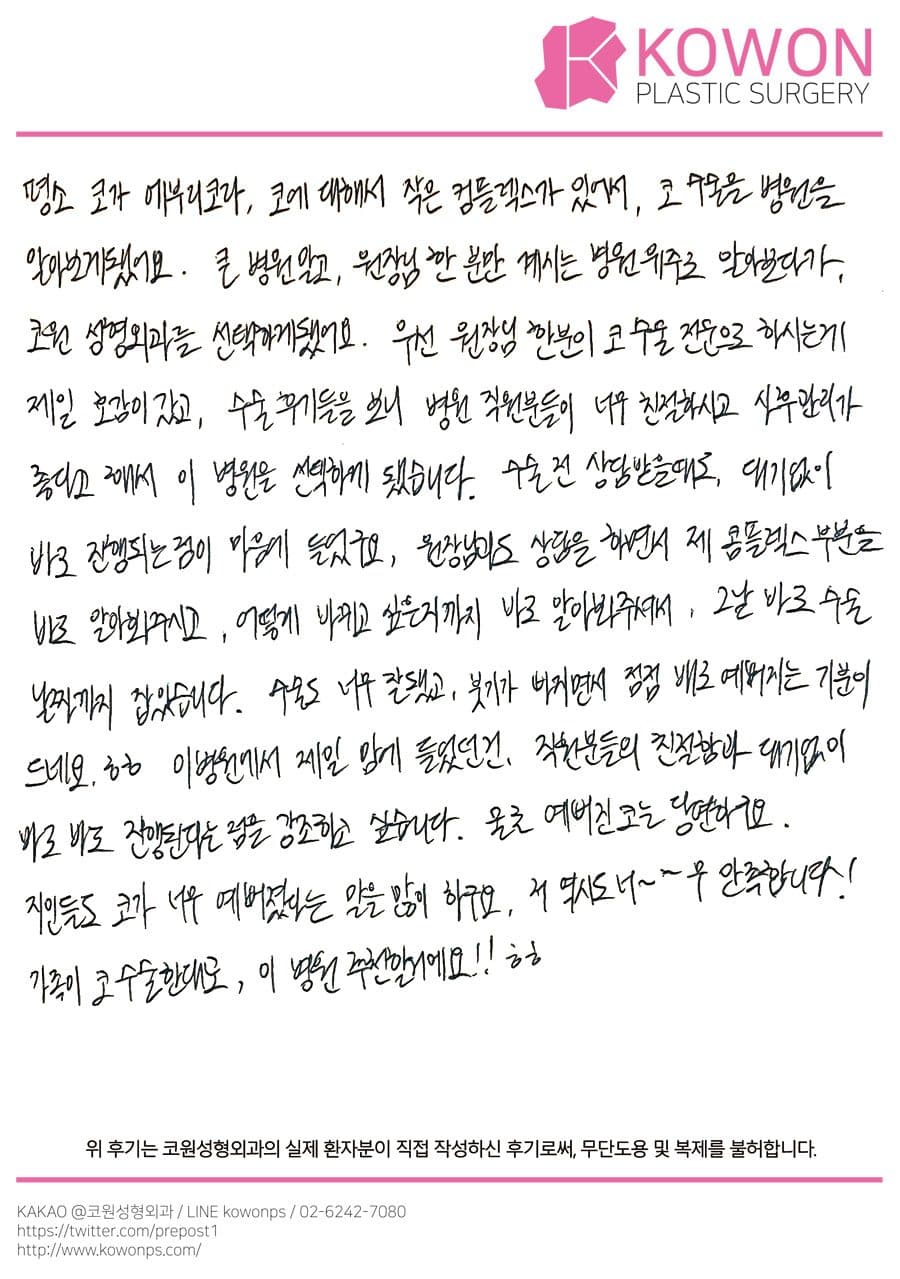 KOWON
PLASTIC SURGERY
평소 코가 메부리코라, 코에 대해서 작은 컴플렉스가 있어서, 코 수술을 병원을
알아보게됐어요. 큰 병원말고, 원장님 한 분만 계시는 병원위주로 알아보다가,
코원 성형외과를 선택하게됐어요. 우선 원장님 한분이 코 수술 전문으로 하시는게
제일 호감이 갔고, 수술 후기들을 보니 병원 직원분들이 너무 친절하시고 사후관리가
좋다고 해서 이 병원을 선택하게 됐습니다. 수술 전 상담받을때도, 대기없이
바로 진행되는점이 마음에 들었구요, 원장님과도 상담을 하면서 제 콤플렉스 부분을
바로 알아봐주시고, 어떻게 바뀌고 싶은지까지 바로 알아봐주셔서, 그날 바로 수술
날짜까지 잡았습니다. 수술도 너무 잘됐고, 붓기가 빠지면서 점점 배로 예뻐지는 기분이
드네요.ㅎㅎ 이병원에서 제일 맘에 들었던건, 직원분들의 친절함과 대기없이
바로 바로 진행된다는 점을 강조하고 싶습니다. 물론 예뻐진 코는 당연하구요.
지인들도 코가 너무 예뻐졌다는 말을 많이 하구요, 저 역시도 너~~무 만족합니다!
가족이 코 수술한대도, 이 병원 추천할거에요!! ㅎㅎ
위 후기는 코원성형외과의 실제 환자분이 직접 작성하신 후기로써, 무단도용 및 복제를 불허합니다.
KAKAO @코원성형외과 / LINE kowonps / 02-6242-7080
https://twitter.com/prepost1
http://www.kowonps.com/